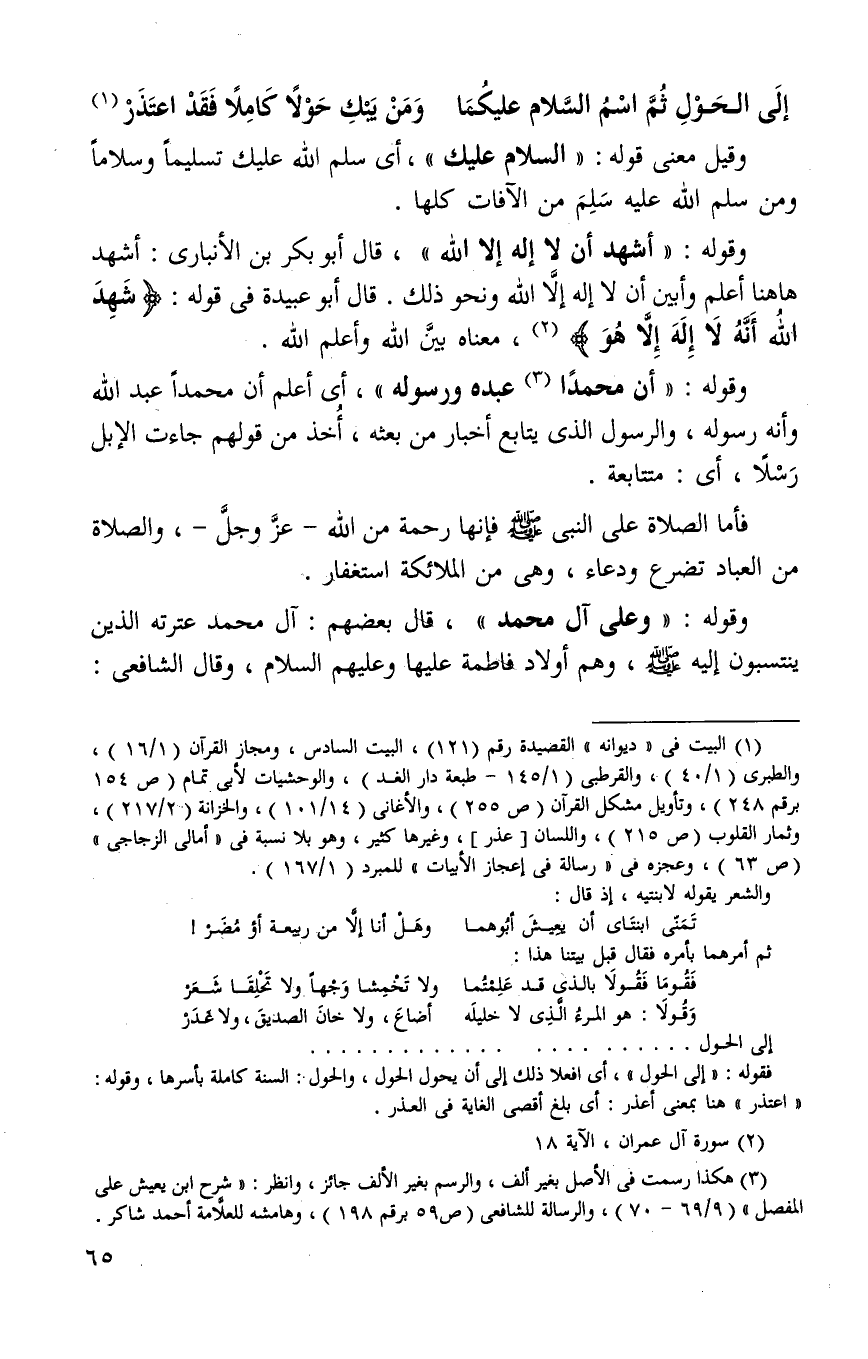 إلَى الـحَـوْلِ ثُمَّ اسْمُ السَّلام عليكُمَا وَمَنْ يَبْكِ حَوْلًا كَامِلًا فَقَدْ اعتَذَرْ (١)
وقيل معنى قوله : « السلام عليك » ، أى سلم الله عليك تسليماً وسلاماً
ومن سلم الله عليه سَلِمَ من الآفات كلها .
وقوله : « أشهد أن لا إله إلا الله » ، قال أبو بكر بن الأنبارى : أشهد
هاهنا أعلم وأبين أن لا إله إلَّا الله ونحو ذلك . قال أبو عبيدة فى قوله : ﴿ شَهِدَ
اللهُ أَنَّهُ لَا إِلَهَ إِلَّا هُوَ ﴾ (٢) ، معناه بيَّن الله وأعلم الله .
وقوله : « أن محمدًا (٣) عبده ورسوله » ، أى أعلم أن محمداً عبد الله
وأنه رسوله ، والرسول الذى يتابع أخبار من بعثه ، أُخذ من قولهم جاءت الإبل
رَسْلًا ، أى : متتابعة .
فأما الصلاة على النبى ﷺ فإنها رحمة من الله – عزَّ وجلَّ – ، والصلاة
من العباد تضرع ودعاء ، وهى من الملائكة استغفار .
وقوله : « وعلى آل محمد » ، قال بعضهم : آل محمد عترته الذين
ينتسبون إليه ﷺ ، وهم أولاد فاطمة عليها وعليهم السلام ، وقال الشافعى :
(١) البيت فى « ديوانه » القصيدة رقم (١٢١) ، البيت السادس ، ومجاز القرآن ( ١٦/١ ) ،
والطبرى ( ٤٠/١ ) ، والقرطبى ( ١٤٥/١ – طبعة دار الغـد ) ، والوحشيات لأبى تمام ( ص ١٥٤
برقم ٢٤٨ ) ، وتأويل مشكل القرآن ( ص ٢٥٥ ) ، والأغانى ( ١٠١/١٤ ) ، والخزانة ( ٢١٧/٢ ) ،
وثمار القلوب ( ص ٢١٥ ) ، واللسان [ عذر ] ، وغيرها كثير ، وهو بلا نسبة فى « أمالى الزجاجى »
( ص ٦٣ ) ، وعجزه فى « رسالة فى إعجاز الأبيات » للمبرد ( ١٦٧/١ ) .
والشعر يقوله لابنتيه ، إذ قال :
تَمَنّى ابنتَاى أن يعِيـشَ أبُوهمـا وهَـلْ أنا إلَّا من ربيعـة أوْ مُضَـرْ !
ثم أمرهما بأمره فقال قبل بيتنا هذا :
فَقُومَا فَقُـولَا بالـذى قـد عَلِمْتُما ولا تَخْمِشـا وَجْهـاً ولا تَحْلِقَـا شَـعَرْ
وَقُـولَا : هو المـرءُ الَّـذِى لا خليلَه أضاعَ ، ولا خانَ الصديقَ ، ولا غَدَرْ
إلى الحـول . . . . . . . . . . . . . . . . . . . . . . . .
فقوله : « إلى الحول » ، أى افعلا ذلك إلى أن يحول الحول ، والحول : السنة كاملة بأسرها ، وقوله :
« اعتذر » هنا بمعنى أعذر : أى بلغ أقصى الغاية فى العـذر .
(٢) سورة آل عمران ، الآية ١٨
(٣) هكذا رسمت فى الأصل بغير ألف ، والرسم بغير الألف جائز ، وانظر : « شرح ابن يعيش على
المفصل » ( ٦٩/٩ – ٧٠ ) ، والرسالة للشافعى ( ص٥٩ برقم ١٩٨ ) ، وهامشه للعلَّامة أحمد شاكر .
٦٥